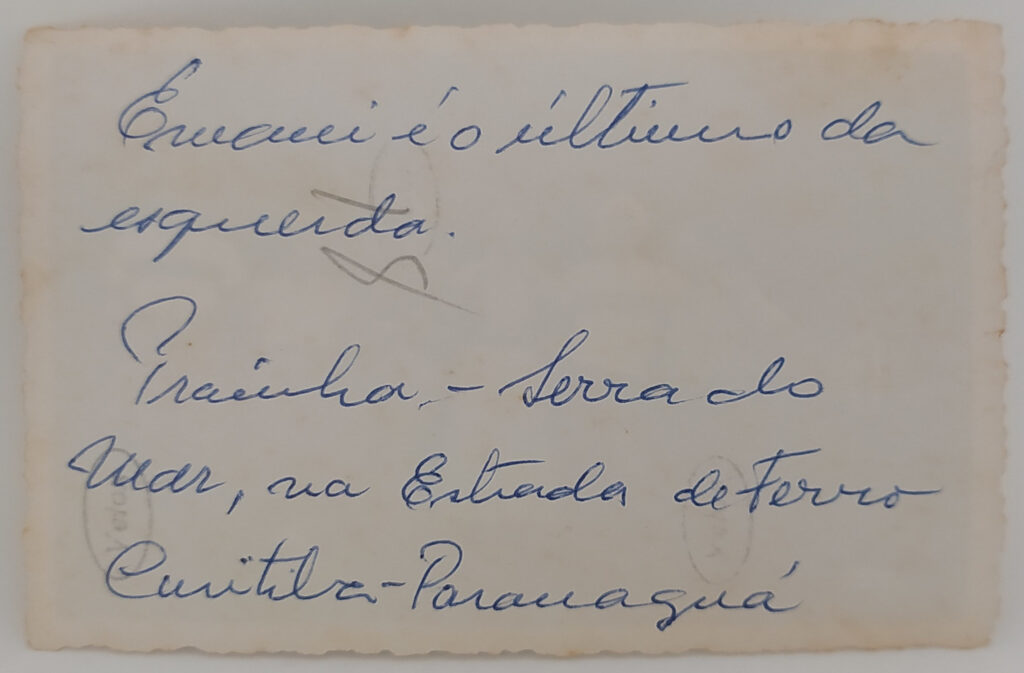 Ernani é o último da
esquerda.
Prainha, - Serra do
Mar, na Estrada de Ferro
Curitiba-Paranaguá
Velox